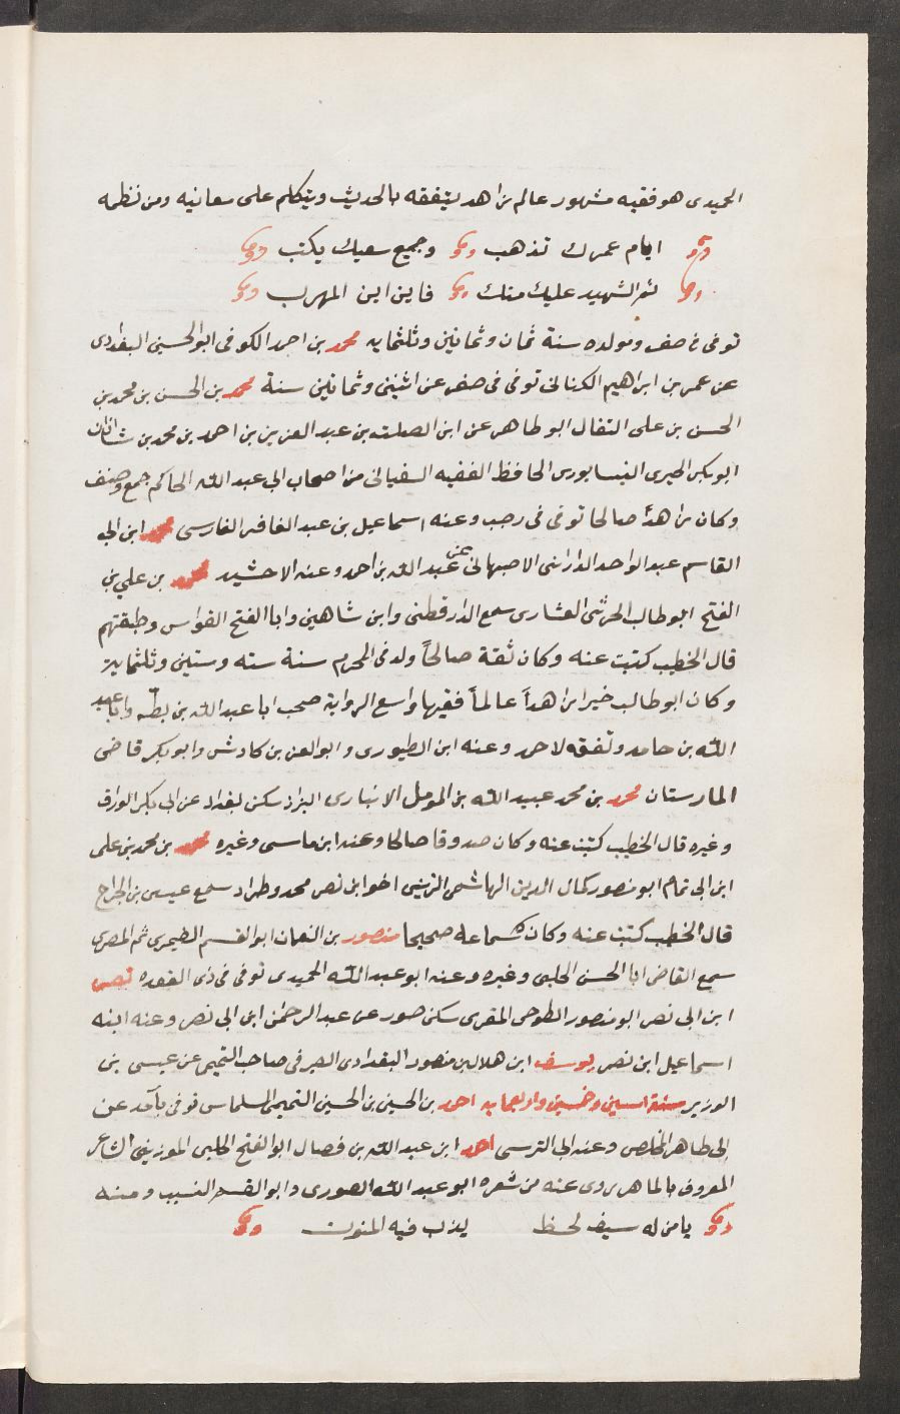 الحميدى هو فقيه مشهور عالم زاهد يتفقه بالحديث ويتكلم على معانيه ومن نظمه
ايام عمرك تذهب وجميع سعيك يكتب
ثم الشهيد عليك منك فاين اين المهرب
توفى فى صفر ومولده سنة ثمان وثمانين وثلثمايه محمد بن احمد الكوفى ابو الحسين البغدادى
عن عمر بن ابراهيم الكنانى توفى فى صفر عن اثنين وثمانين سنة محمد بن الحسن بن محمد بن
الحسن بن على التفال ابو طاهر عن ابن الصلت بن عبد العزيز بن احمد بن محمد بن شاذان
ابو بكر الحيرى النيسابورى الحافظ الفقيه السفيانى من اصحاب ابى عبد الله الحاكم جمع وصنف
وكان زاهدًا صالحا توفى فى رجب وعنه اسماعيل بن عبد الغافر الفارسى محمد ابن ابى
القاسم عبد الواحد الدارانى الاصبهانى عن عبد الله بن احمد وعنه الاخشيد محمد بن علي بن
الفتح ابو طالب الحربى العشارى سمع الدارقطنى وابن شاهين وابا الفتح القواس وطبقتهم
قال الخطيب كتبت عنه وكان ثقة صالحاً ولد فى المحرم سنة سته وستين وثلثماية
وكان ابو طالب خيرا زاهداً عالماً فقيها واسع الرواية صحب ابا عبد الله بن بطه وابا عبد
الله بن حامد وتفقه لاحمد وعنه ابن الطيورى وابو العز بن كادش وابو بكر قاضى
المارستان محمد بن محمد عبيد الله بن المومل الانبارى البزاز سكن بغداد عن ابى بكر الوراق
وغيره قال الخطيب كتبت عنه وكان صدوقا صالحا وعند ابن ماسى وغيره محمد بن محمد بن على
ابن ابى تمام ابو منصور كمال الدين الهاشمى الزينبى اخو ابن نصر محمد وطراد سمع عيسى بن الجراح
قال الخطيب كتبت عنه وكان سماعه صحيحا منصور بن النعمان ابو القسم الصيمرى ثم المصرى
سمع القاضى ابا الحسن الحلبى وغيره وعنه ابو عبد الله الحميدى توفى فى ذى القعده نصر
ابن ابى نصر ابو منصور الطوسى المقرى سكن صور عن عبد الرحمٰن ابن ابى نصر وعنه ابنه
اسماعيل ابن نصر يوسف ابن هلال بن منصور البغدادى الصرفى صاحب التميمى عن عيسى بن
الوزير سنة اسين وخمسين واربعمايه احمد بن الحسين بن الحسين التميمى السلماسى توفى بآمد عن
ابى طاهر المخلص وعنه ابى النرسى احمد ابن عبد الله بن فصال ابو الفتح الحلبى الموزينى الشاعر
المعروف بالماهر يروى عنه من شعره ابو عبد الله الصورى وابو القسم النسيب ومنه
يا من له سيف لحظ يدب فيه المنون